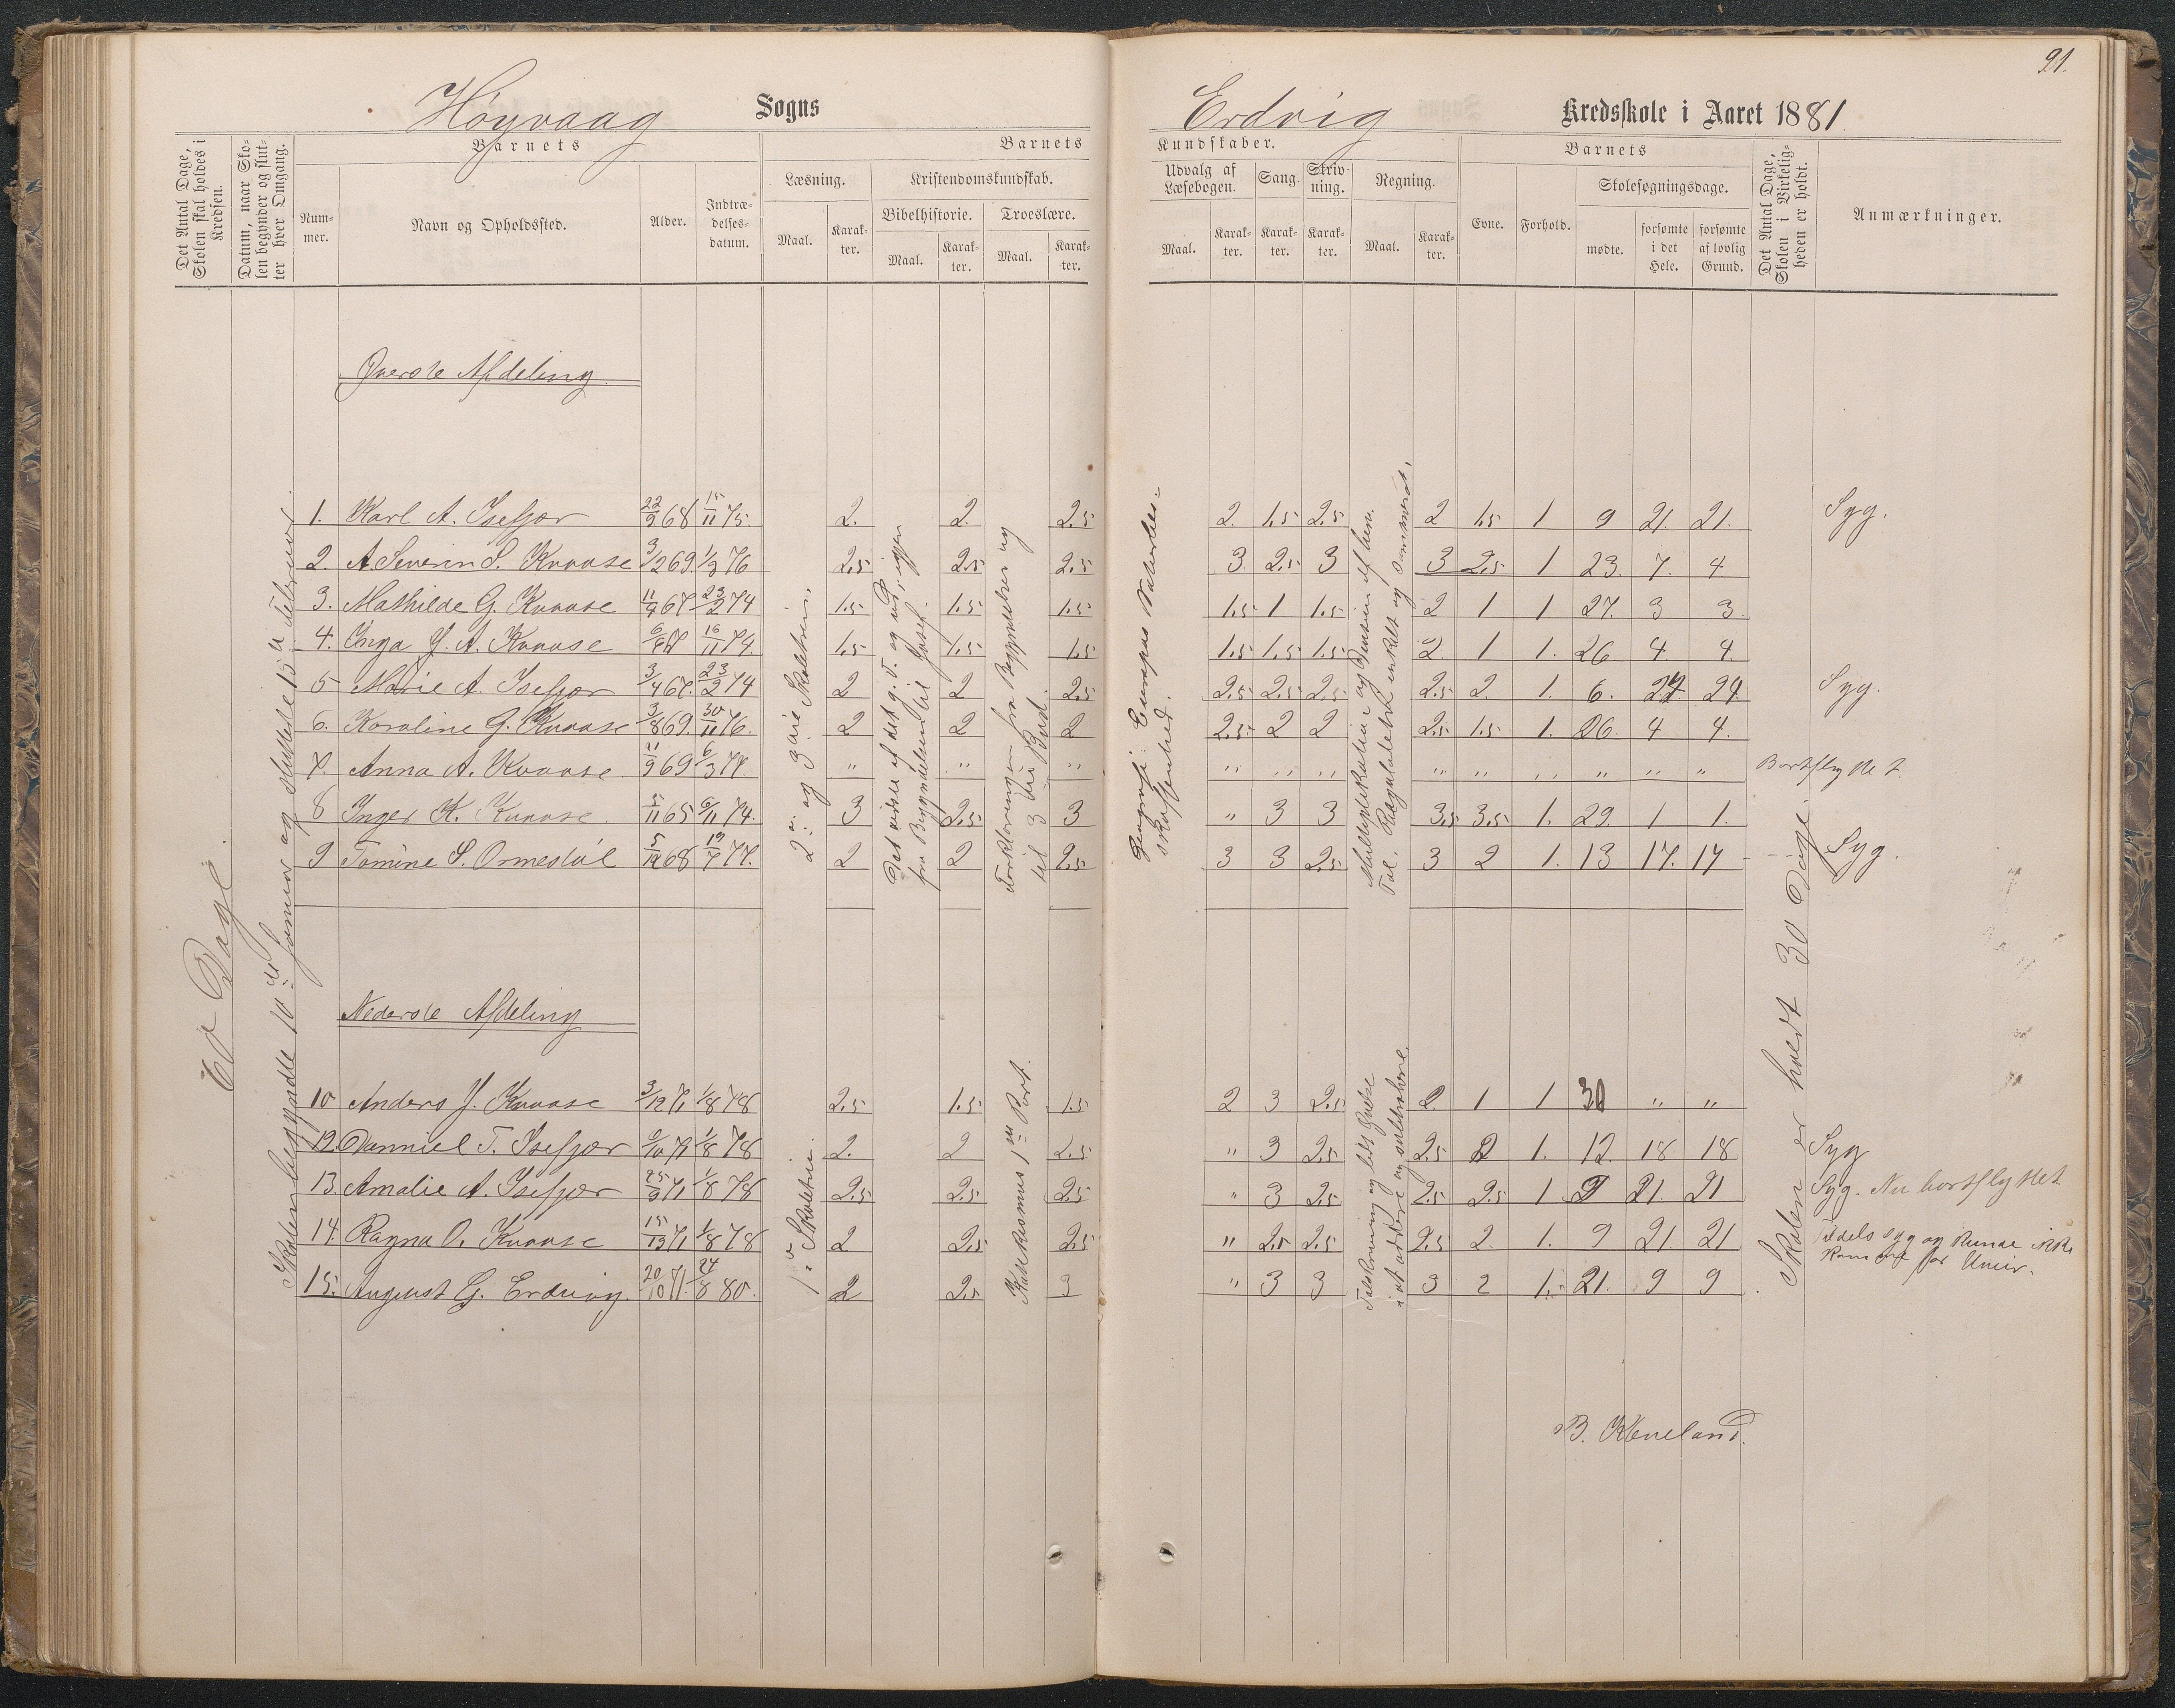 91.
Høyvaag Sogns
Erdvig Kredsskole i Aaret 1881.
Det Antal Dage, Skolen skal holdes i Kredsen.
Datum, naar Skolen begynder og slutter hver Omgang.
Barnets
Nummer.
Navn og Opholdssted.
Alder.
Indtrædelsesdatum.
Barnets
Læsning.
Maal.
Karakter.
Kristendomskundskab.
Bibelhistorie.
Maal.
Karakter.
Troeslære.
Maal.
Karakter.
Kundskaber.
Udvalg af Læsebogen.
Maal.
Karakter.
Sang.
Karakter.
Skrivning.
Karakter.
Regning.
Maal.
Karakter.
Barnets
Evne.
Forhold.
Skolesøgningsdage.
mødte.
forsømte i det Hele.
forsømte af lovlig Grund.
Det Antal Dage, Skolen i Virkeligheden er holdt.
Anmærkninger.
60 Dage.
Skolen begyndte 10de Januar og sluttede 15de Februar.
Øverste Afdeling.
1. Karl A. Isefjær 22/9 68 15/11 75. 2. 2. 2.5 2. 1.5 2.5 2 1.5 1 9 21. 21. Syg.
2. A. Severin S. Kvaase 3/12 69. 1/3 76 2.5 2.5 2.5 3. 2.5 3 3 2.5 1 23. 7. 4
3. Mathilde G. Kvaase 11/9 67 23/2 74 1.5 1.5 1.5 1.5 1 1.5 2 1 1 27. 3 3.
4. Inga J. A. Kvaase 6/6 67 16/11 74. 1.5 1.5 1.5 1.5 1.5 1.5 2. 1 1. 26 4 4.
5 Marie A. Isefjær 3/4 67. 23/2 74 2 2 2.5 2.5 2.5 2.5 2.5 2. 1. 6. 24 24. Syg.
6. Karoline G. Kvaase 3/8 69. 30/11 76. 2 2 2 2.5 2 2 2.5 1.5 1. 26. 4 4.
7. Anna A. Kvaase 21/9 69 6/3 77. " " " " " " " " " " " " Bortflyttet.
8 Inger K. Kvaase. 65 74. 3 2.5 3 " 3 3 3.5 3.5 1. 29. 1 1.
9 Tomine S. Ormestøl 5/12 68 19/7 77. 2 2 2.5 3 3 2.5 3 2 1. 13 17. 17 Syg.
2det og 3die Skoletrin.
til Josef.
Forklaringen fra Begyndelsen og til 3die Bud.
Geografi: Europas Naturbeskaffenhed.
Multiplikation og Division af hene. Tal. Reguladetri enkelt og sammensat.
Skolen er holdt 30 Dage.
Nederste Afdeling
10 Anders J. Kvaase 3/12 71 1/8 78 2.5 1.5 1.5 2 3 2.5 2. 1 1 30 " "
12. Danniel T. Isefjær 9/10 71 1/8 78 2. 2 2.5 " 3 2.5 2.5 2 1. 12. 18 18 Syg
13. Amalie A. Isefjær 25/9 71 1/8 78 2.5 2.5 2.5 " 3 2.5 2.5 2.5 1 9 21. 21 Syg. Nu bortflyttet
14. Ragna O. Kvaase 71 1/8 78 2 2.5 2.5 " 2.5 2.5 2.5 2. 1. 9 21. 21 Tildels syg og kunde ikke komme for Uveir.
15. August G. Erdvig. 20/10 71. 24/8 80. 2 2.5 3 " 3 3 3 2 1. 21. 9 9
1ste Skoletrin
Katekismus 1ste Part.
Talskrivning og lidt Øvelse i at addere og subtrahere.
B. Kveland.